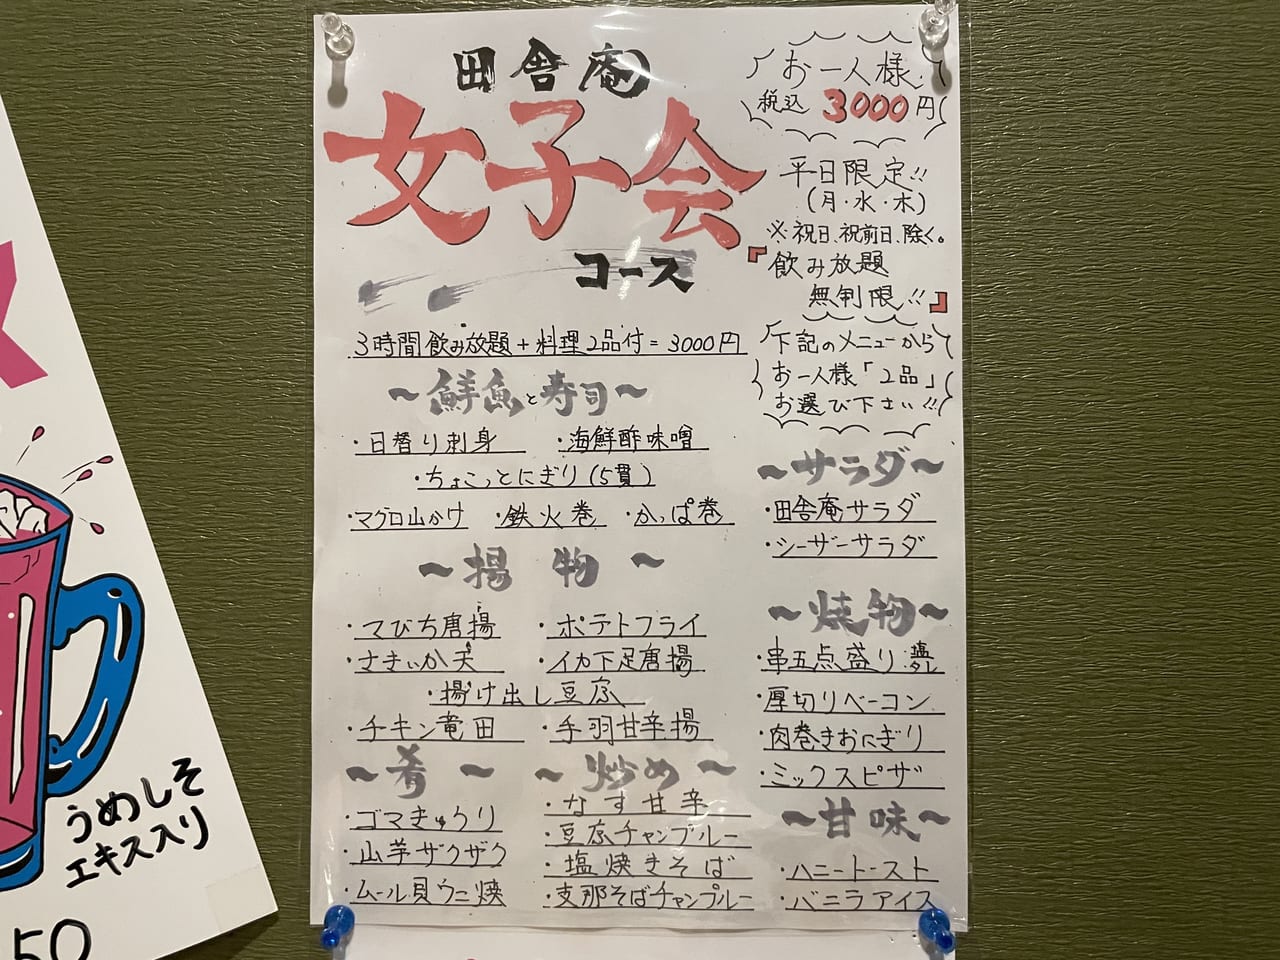 田舎庵
女子会
コース
お一人様
税込 3000円
平日限定!!
(月・水・木)
※祝日、祝前日、除く。
『飲み放題
無制限!!』
3時間飲み放題+料理2品付=3000円
下記のメニューから
お一人様「2品」
お選び下さい!!
～鮮魚と寿司～
・日替り刺身
・海鮮酢味噌
・ちょこっとにぎり(5貫)
・マグロ山かけ
・鉄火巻
・かっぱ巻
～揚物～
・マびち唐揚
・ポテトフライ
・さきいか天
・イカ下足唐揚
・揚げ出し豆腐
・チキン竜田
・手羽甘辛揚
～肴～
・ゴマきゅうり
・山芋ザクザク
・ムール貝ウニ焼
～炒め～
・なす甘辛
・豆腐チャンプルー
・塩焼きそば
・支那そばチャンプルー
～サラダ～
・田舎庵サラダ
・シーザーサラダ
～焼物～
・串五点盛り 塩 タレ
・厚切りベーコン
・肉巻きおにぎり
・ミックスピザ
～甘味～
・ハニートースト
・バニラアイス
うめしそ
エキス入り
50